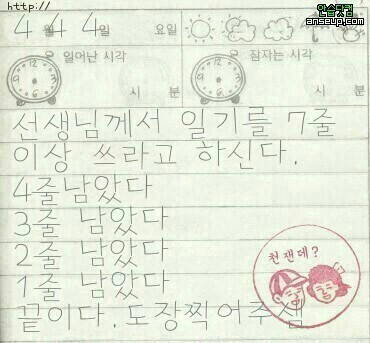 http://
안습닷컴
anseup.com
4 월 4 4 일 요일
일어난 시각 잠자는 시각
시 분 시 분
선생님께서 일기를 7줄
이상 쓰라고 하신다.
4줄남았다
3줄 남았다
2줄 남았다
1줄 남았다
천잰데?
끝이다. 도장찍어주셈